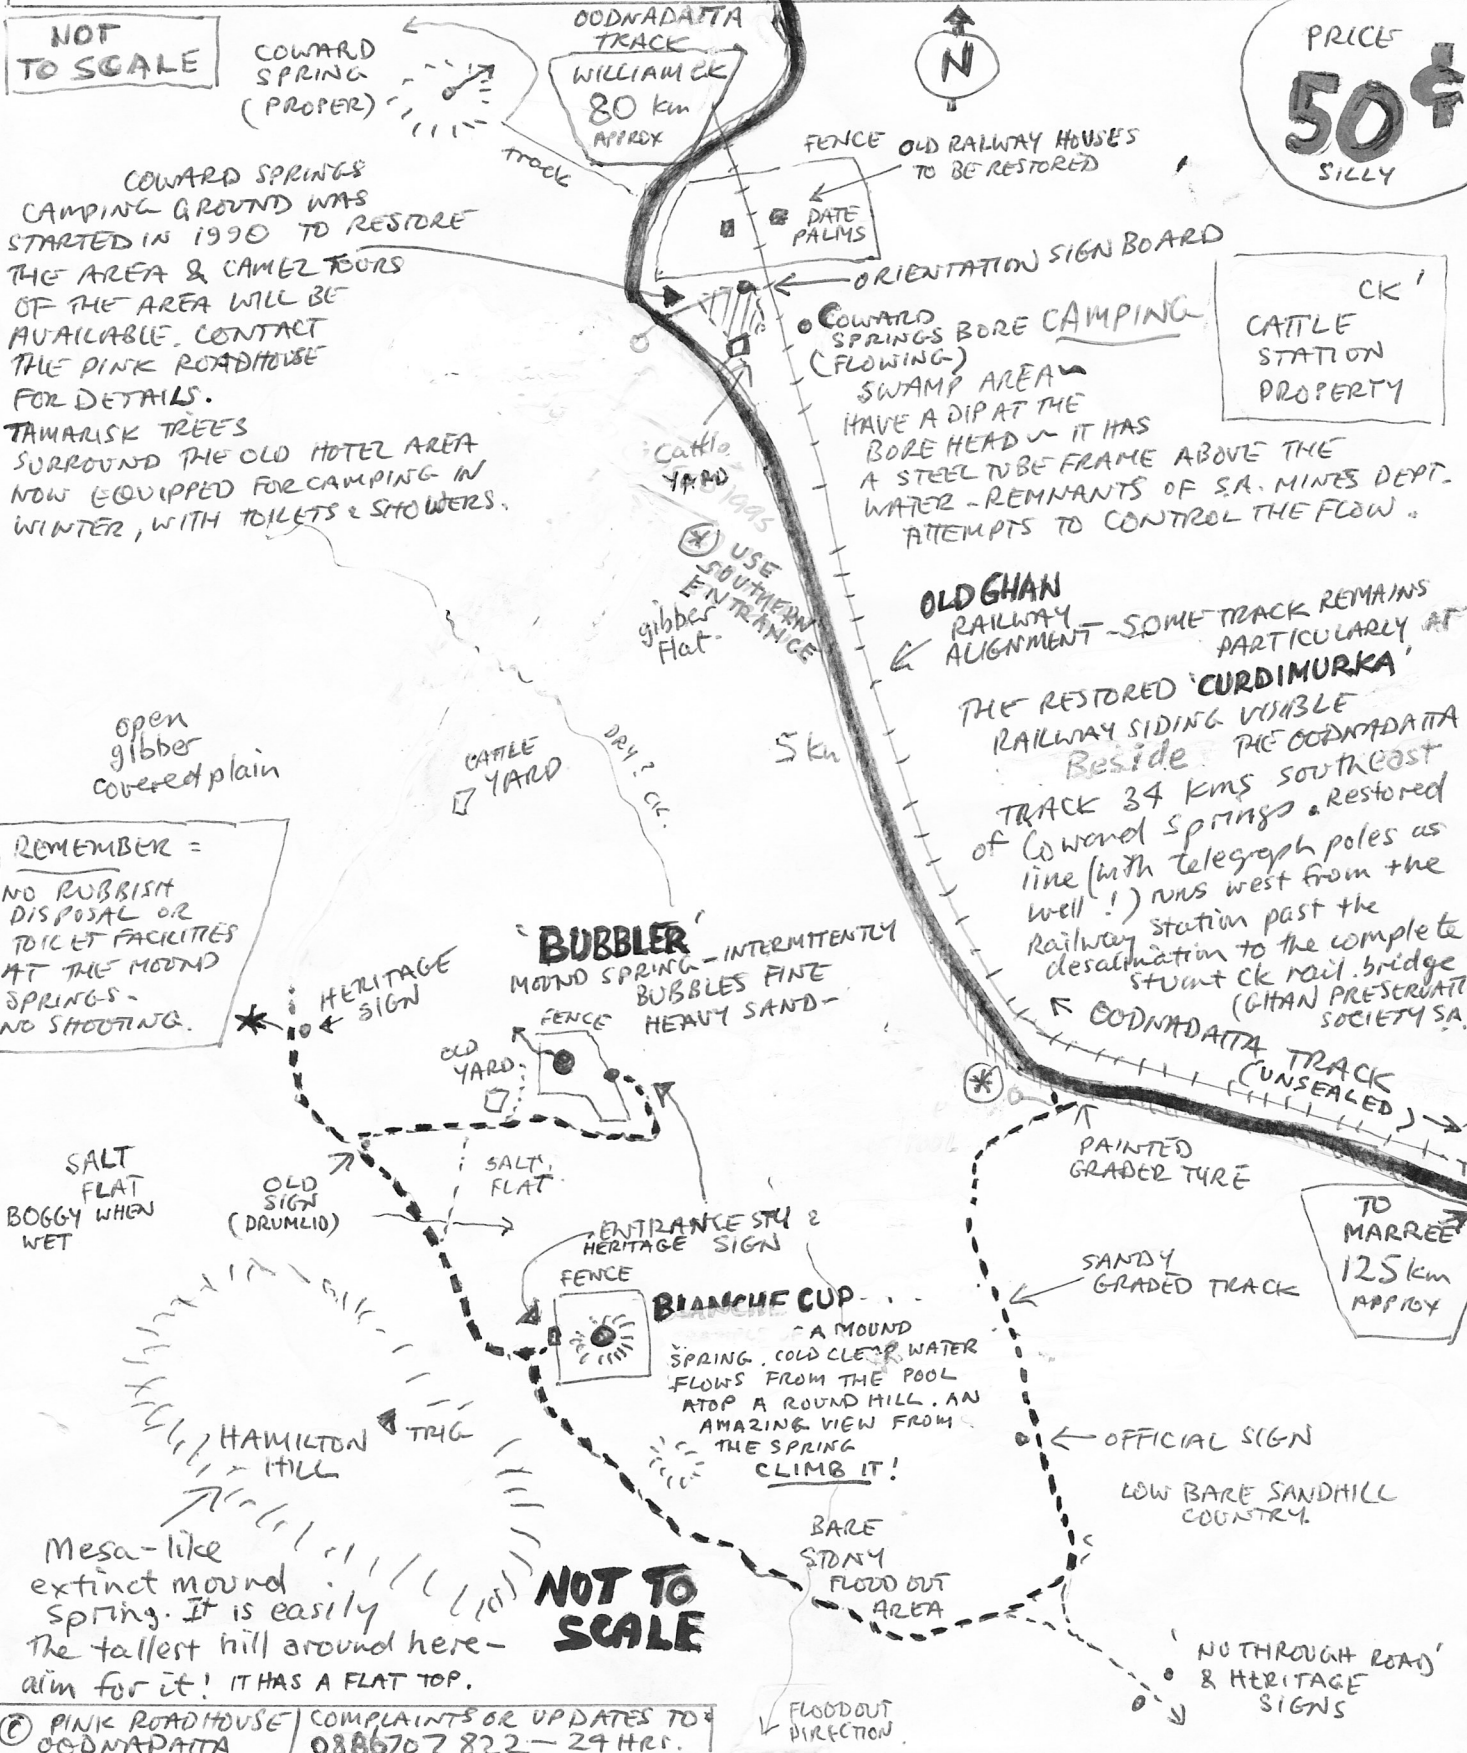 NOT
TO SCALE
COWARD
SPRING
(PROPER)
track
OODNADATTA
TRACK
WILLIAM CK
80 km
APPROX
N
PRICE
50¢
SILLY
FENCE
OLD RAILWAY HOUSES
TO BE RESTORED
DATE
PALMS
COWARD SPRINGS
CAMPING GROUND WAS
STARTED IN 1990 TO RESTORE
THE AREA & CAMEL TOURS
OF THE AREA WILL BE
AVAILABLE. CONTACT
THE PINK ROADHOUSE
FOR DETAILS.
TAMARISK TREES
SURROUND THE OLD HOTEL AREA
NOW EQUIPPED FOR CAMPING IN
WINTER, WITH TOILETS & SHOWERS.
ORIENTATION SIGN BOARD
COWARD
SPRINGS BORE CAMPING
(FLOWING)
SWAMP AREA ~
HAVE A DIP AT THE
BORE HEAD ~ IT HAS
A STEEL TUBE FRAME ABOVE THE
WATER - REMNANTS OF S.A. MINES DEPT.
ATTEMPTS TO CONTROL THE FLOW.
CK'
CATTLE
STATION
PROPERTY
Cattle
YARD
1995
* USE
SOUTHERN
ENTRANCE
gibber
flat.
OLD GHAN
RAILWAY
ALIGNMENT - SOME TRACK REMAINS
PARTICULARLY AT
THE RESTORED 'CURDIMURKA'
RAILWAY SIDING VISIBLE
Beside THE OODNADATTA
TRACK 34 kms southeast
of Coward Springs. Restored
line (with telegraph poles as
well!) runs west from the
Railway Station past the
desalination to the complete
Stuart Ck rail bridge
(GHAN PRESERVATI
SOCIETY SA.
5 km
open
gibber
covered plain
CATTLE
YARD
DRY? CK.
REMEMBER =
NO RUBBISH
DISPOSAL OR
TOILET FACILITIES
AT THE MOUND
SPRINGS -
NO SHOOTING.
HERITAGE
SIGN
'BUBBLER'
MOUND SPRING - INTERMITTENTLY
BUBBLES FINE
HEAVY SAND -
FENCE
OLD
YARD
OODNADATTA TRACK
(UNSEALED)
*
PAINTED
GRADER TYRE
SALT
FLAT
BOGGY WHEN
WET
OLD
SIGN
(DRUMLID)
SALT
FLAT
TO
MARREE
125 km
APPROX
ENTRANCE STY &
HERITAGE SIGN
FENCE
BLANCHE CUP
- A MOUND
SPRING. COLD CLEAR WATER
FLOWS FROM THE POOL
ATOP A ROUND HILL. AN
AMAZING VIEW FROM
THE SPRING
CLIMB IT!
SANDY
GRADED TRACK
HAMILTON
HILL
TRIG
OFFICIAL SIGN
LOW BARE SANDHILL
COUNTRY.
Mesa-like
extinct mound
spring. It is easily
the tallest hill around here -
aim for it! IT HAS A FLAT TOP.
NOT TO
SCALE
BARE
STONY
FLOOD OUT
AREA
'NO THROUGH ROAD'
& HERITAGE
SIGNS
FLOODOUT
DIRECTION
© PINK ROADHOUSE
OODNADATTA
COMPLAINTS OR UPDATES TO:
0886707 822 - 24 HRS.